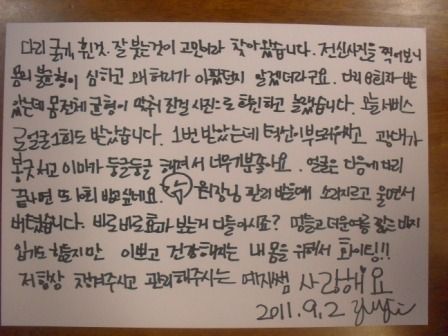 다리 굵게, 휜것. 잘 붓는것이 고민이라 찾아왔습니다. 전신사진을 찍어보니
몸의 불균형이 심하고 왜 허리가 아팠던지 알겠더라구요. 다리 8회차 받
았는데 몸전체 균형이 맞춰진걸 사진으로 확인하고 놀랬습니다. 오늘 서비스
로 얼굴 1회도 받았습니다. 1번 받았는데 턱선이 부드러워지고 광대가
봉긋서고 이마가 둥글둥글 해져서 너무 기분좋아요. 얼굴은 다음에 다리
끝나면 또 10회 받고싶네요. 원장님 관리 받을때 소리지르고 울면서
버텼습니다. 바로바로 효과 보는거 다들아시죠? 멍들고 더운여름 짧은 바지
입기도 힘들지만 이쁘고 건강해지는 내 몸을 위해서 화이팅!!
저 항상 챙겨주시고 관리해주시는 예지쌤 사랑해요
2011.9.2